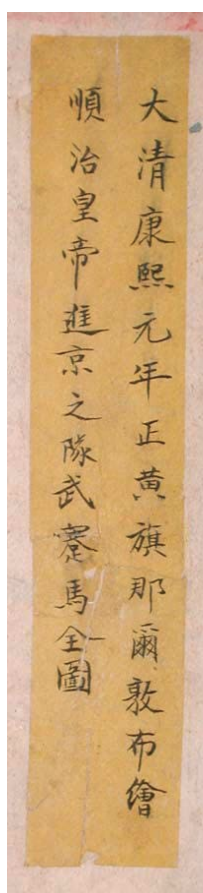 大清康熙元年正黃旗那爾敦布繪
順治皇帝進京之隊武馬全圖